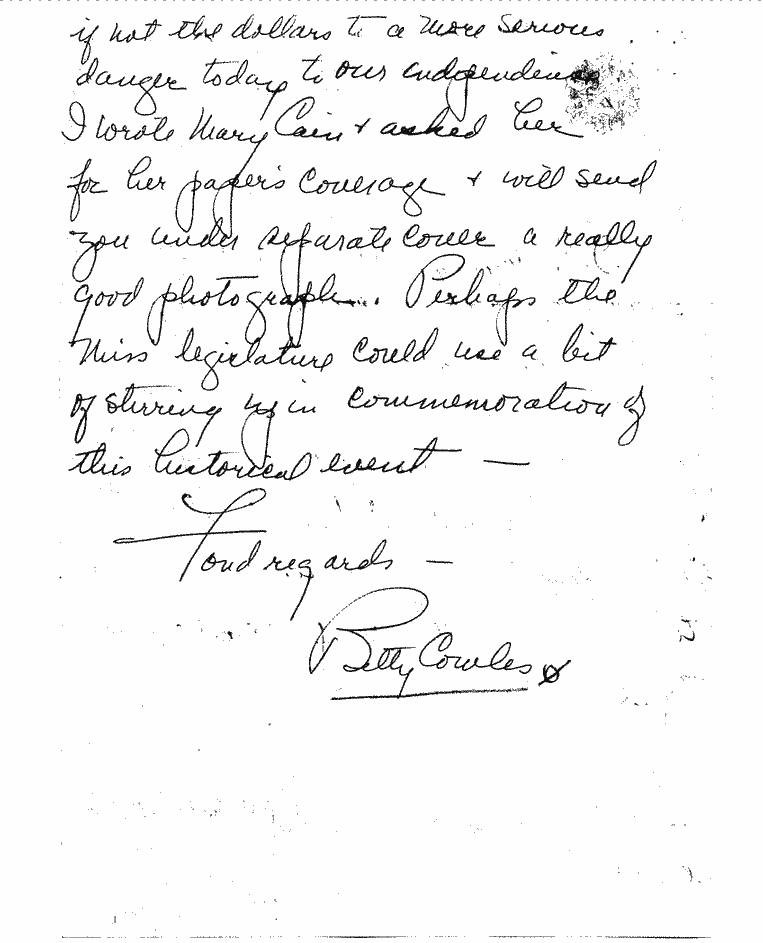 if not the dollars to a more serious
danger today to our independence
I wrote Mary Cain + asked her
for her paper's coverage + will send
you under separate cover a really
good photograph. Perhaps the
Miss legislature could use a bit
of stirring up in commemoration of
this historical event —
Fond regards —
Betty Cowles